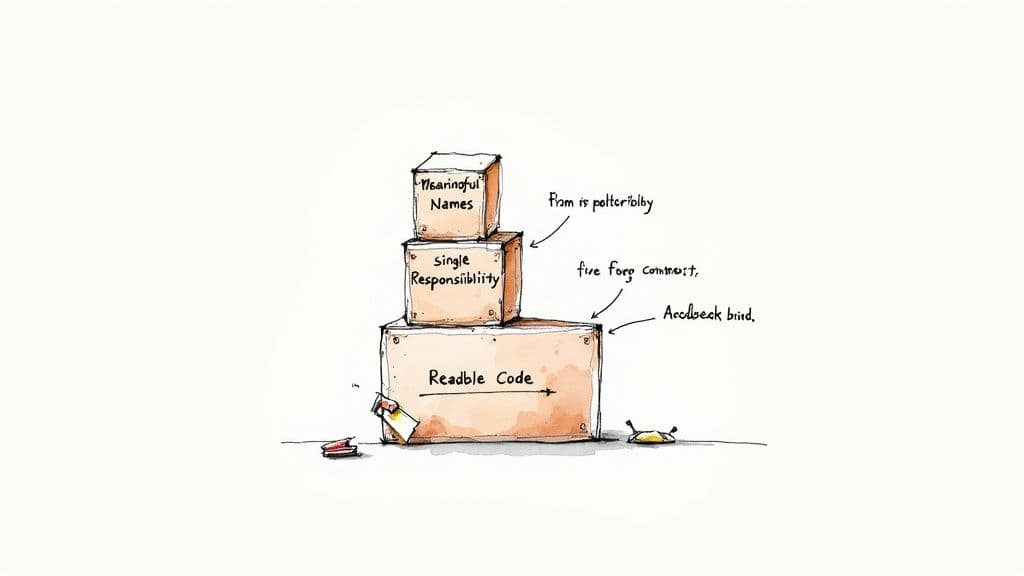 Meaninoful
Names
Single
Responsiibliity
Readble Code
Fhm is poltcribly
five Forg commost,
Accdbeck brird.